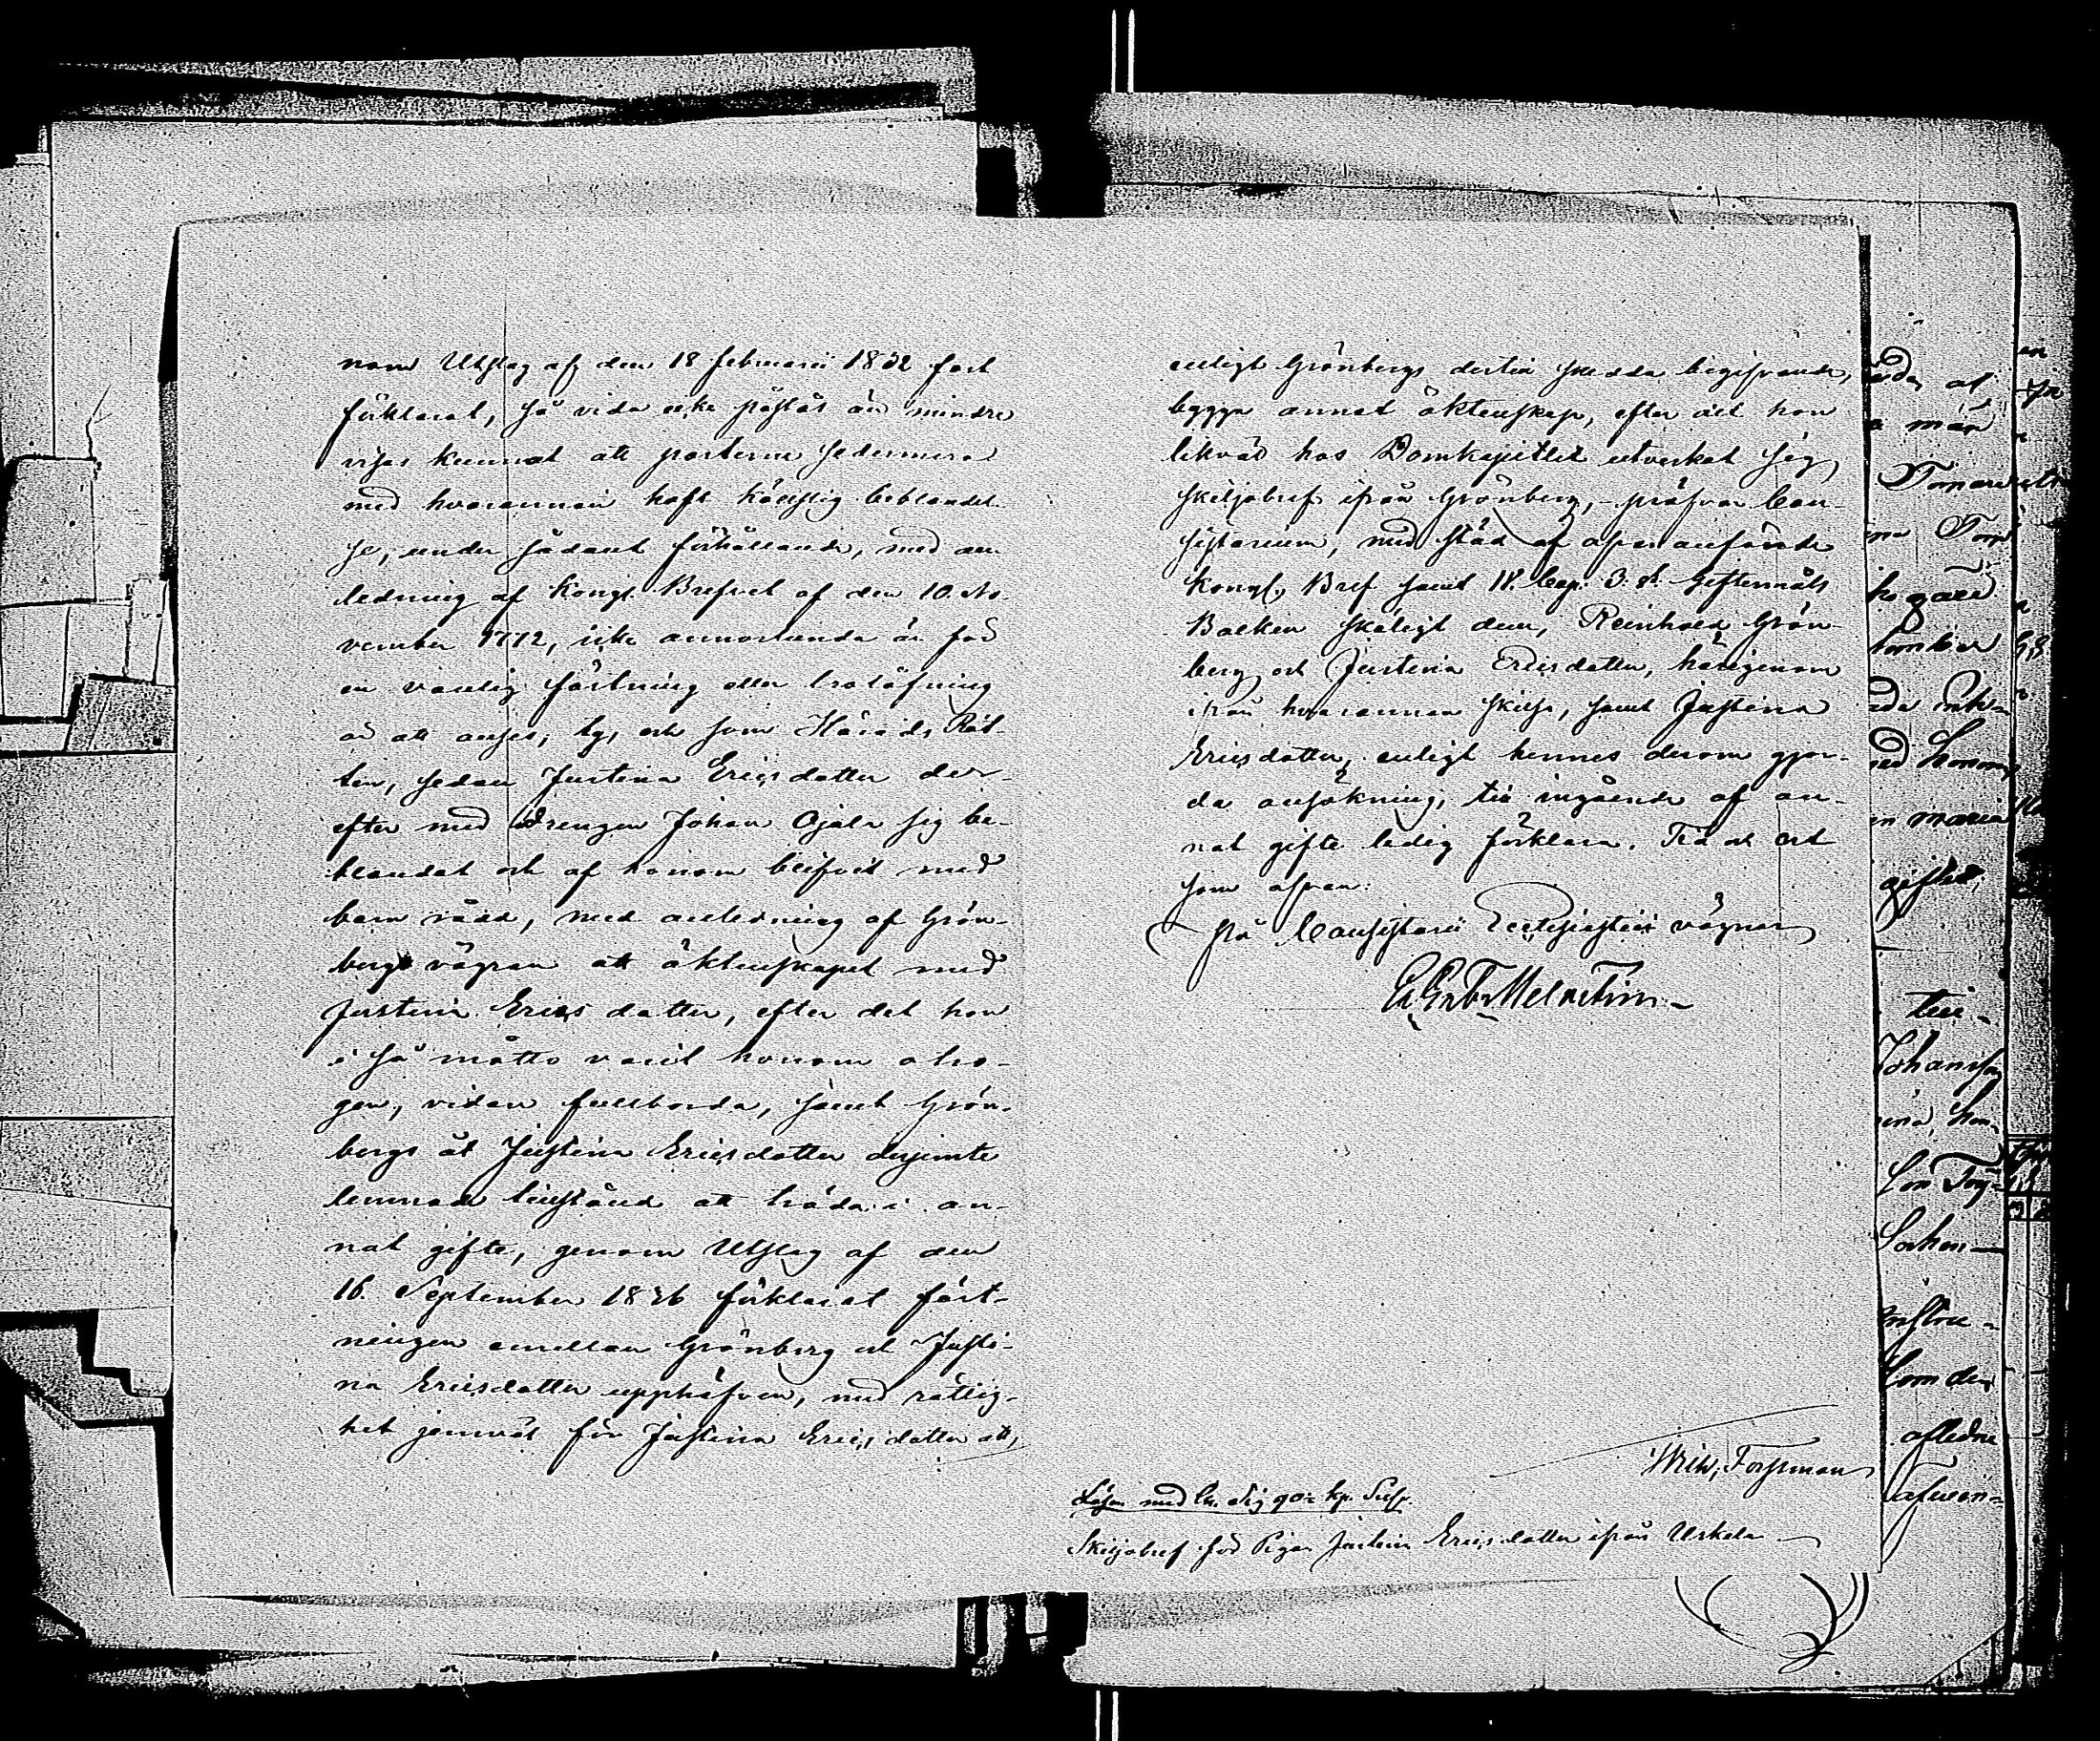 nom Utslag af den 18 februarii 1832 fast
förklarat, så vida icke påstås än mindre
visas kunnat att parterne sedermera
med hvarannan haft köttslig beblandel-
se, under sådant förhållande, med an-
ledning af Kongl. Brefvet af den 10 No-
vember 1772, icke annorlunda än för
en vanlig fästning eller trolofning
är att anses; ty, och som Härads Rät-
ten, sedan Justina Ericsdotter der-
efter med drengen Johan Ojala sig be-
blandat och af honom blifvit med
barn rådd, med anledning af Grön-
bergs vägran att äktenskapet med
Justina Ericsdotter, efter det hon
i så måtto varit honom otro-
gen, vidare fullborda, samt Grön-
bergs åt Justina Ericsdotter derjemte
lemnade tillstånd att träda i an-
nat gifte, genom Utslag af den
16. September 1836 förklarat fäst-
ningen emellan Grönberg och Justi-
na Ericsdotter upphäfven, med rättig-
het jemväl för Justina Ericsdotter att,
enligt Grönbergs dertill skedda begifvande,
bygga annat äktenskap, efter det hon
likväl hos Domkapitlet utverkat sig
skiljobref ifrån Grönberg, pröfvar Con-
sistorium, med stöd af ofvan anförde
Kongl. Bref samt 18. Cap. 3. §. Giftermåls
Balken skäligt dem, Reinhold Grön-
berg och Justina Ericsdotter, härigenom
ifrån hvarannan skilja, samt Justina
Ericsdotter, enligt hennes derom gjor-
da ansökning, till ingående af an-
nat gifte ledig förklara. Tid och ort
som ofvan.
På Consistorii Ecclesiastici vägnar
Er. Gabr. Melartin
Wilh. Forssman
Lösen med Ch. Sig. 90 kp. Silfr.
Skiljobref för Pigan Justina Ericsdotter ifrån Urkela
af
mår
gård
Enk-
med
en Maria
gifter,
till
Johansson
Sochen
som den
aflidne